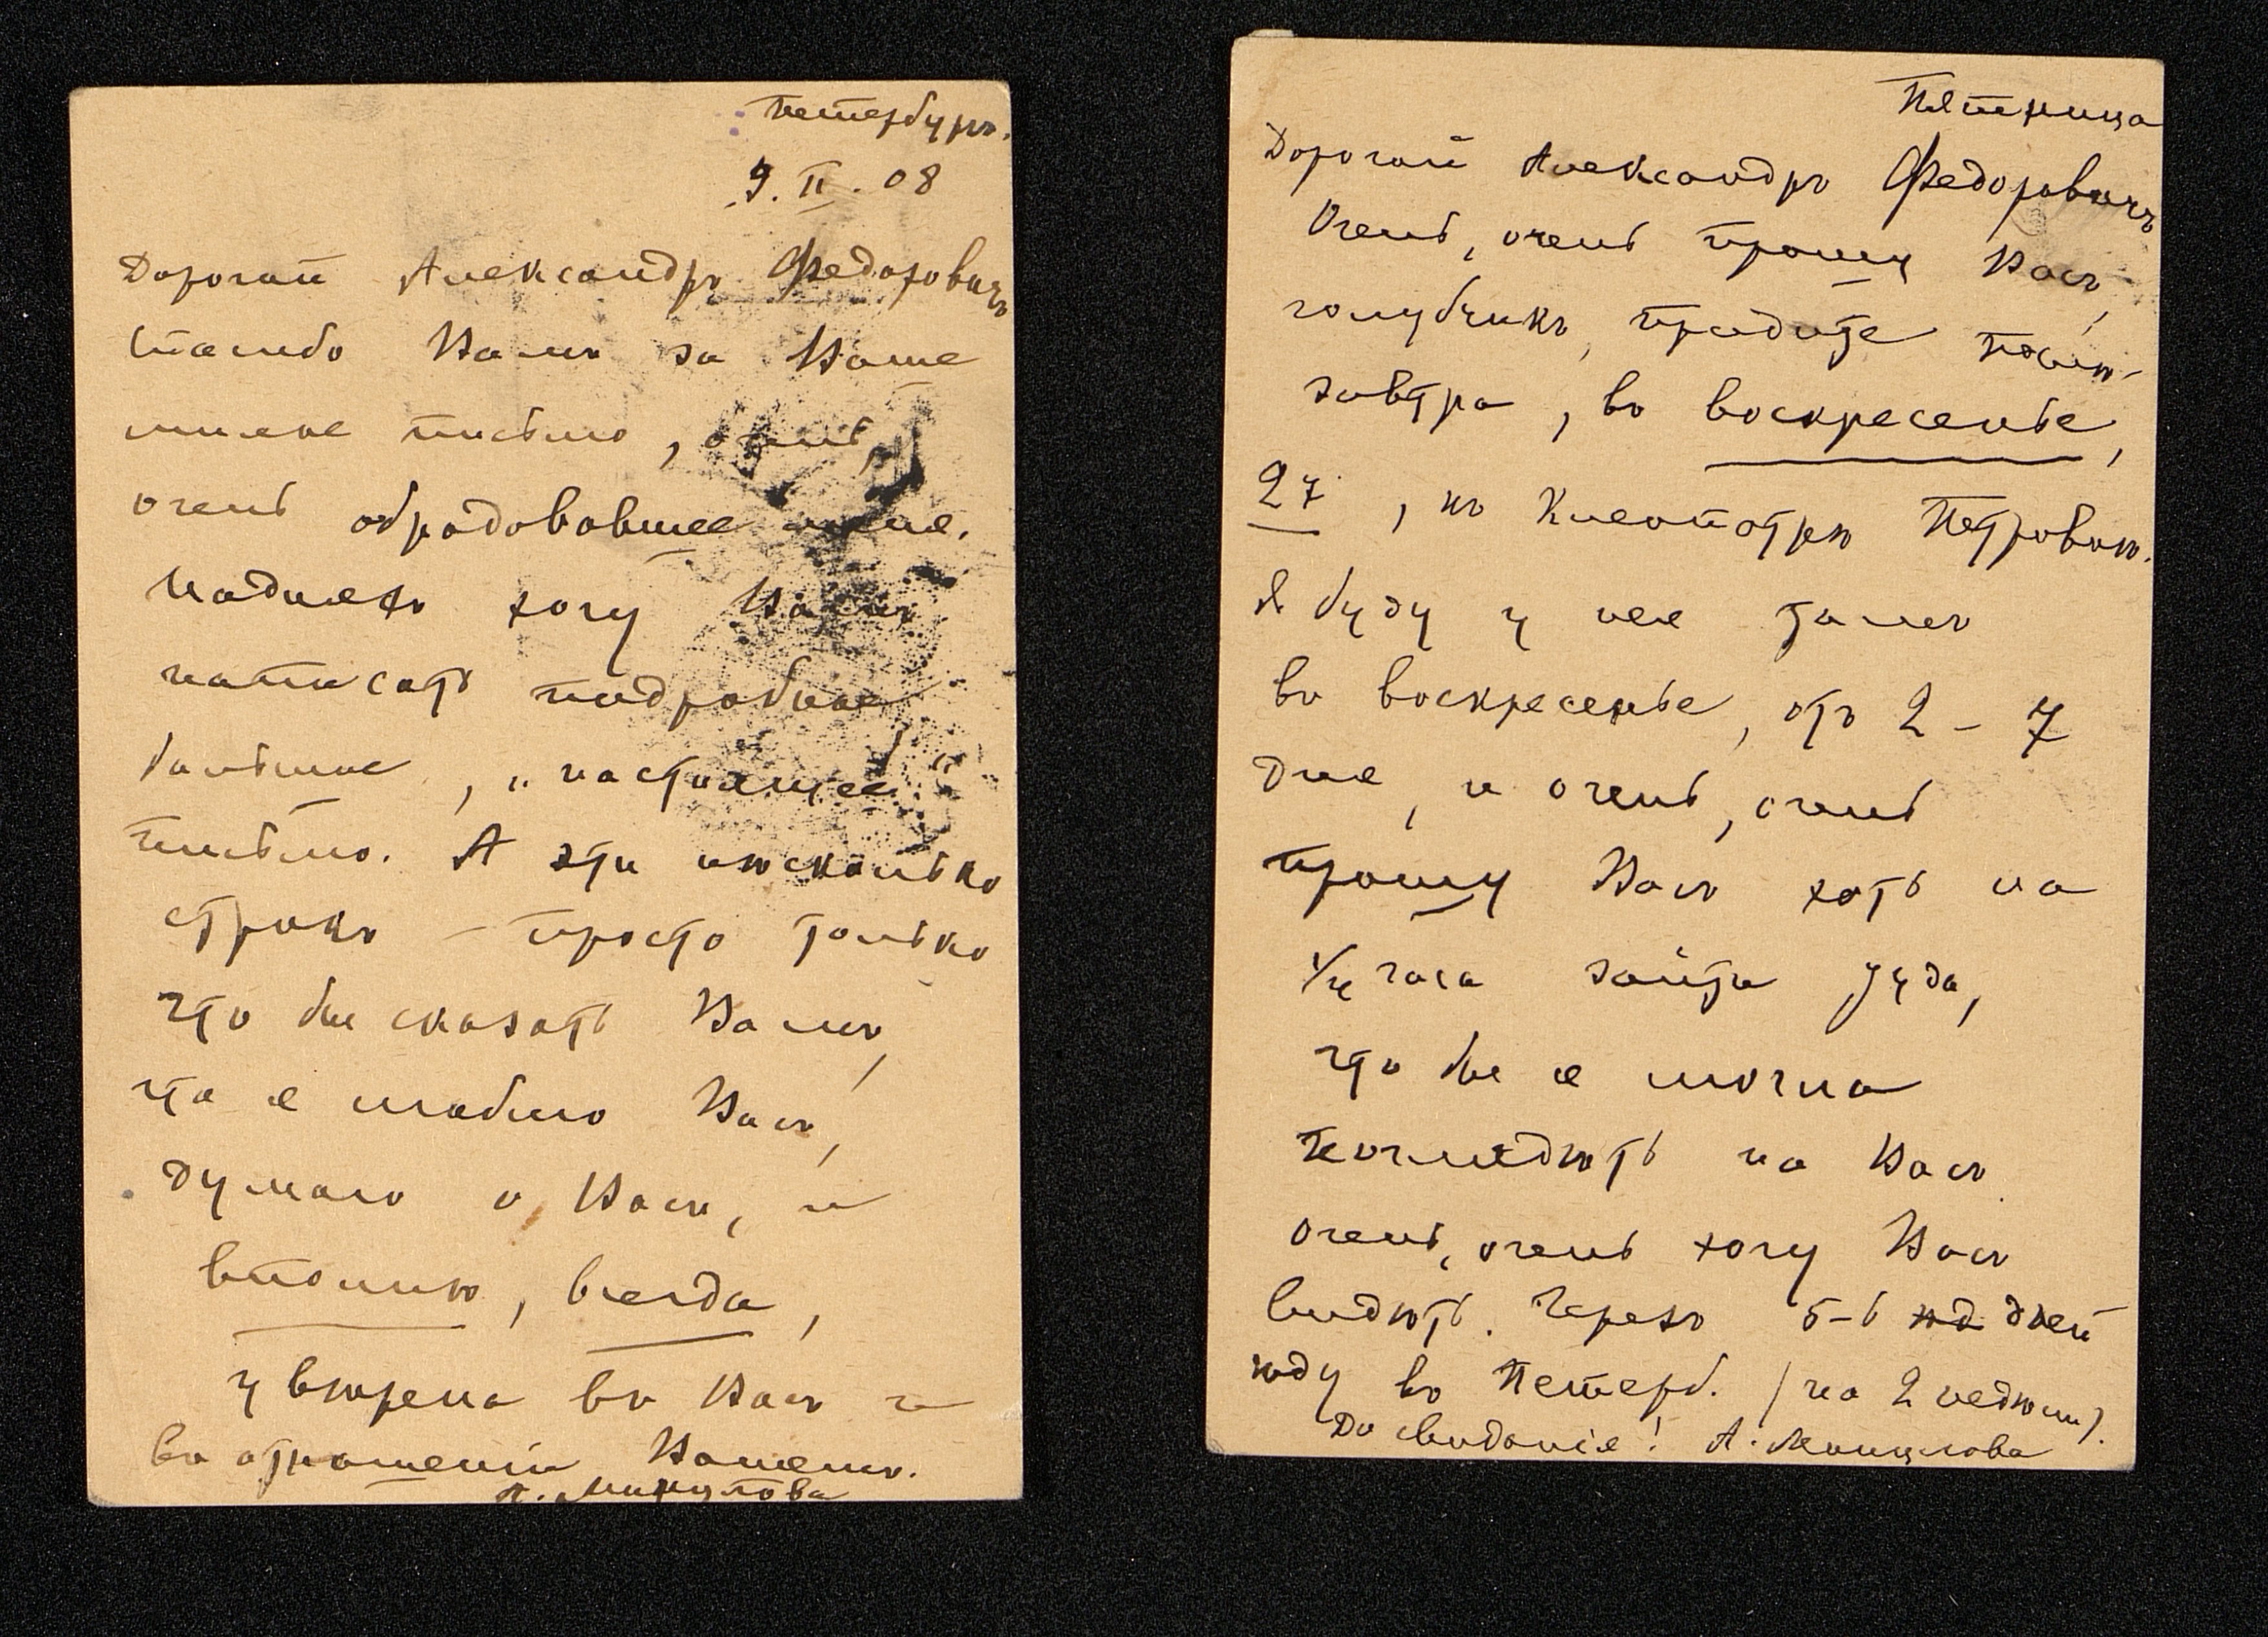 Петербургъ.
9. II. 08
Дорогой Александръ Федоровичъ
Спасибо Вамъ за Ваше
милое письмо, очень,
очень обрадовавшее меня.
Надняхъ хочу Вамъ
написать подробное
большое, „настоящее"
письмо. А эти нѣсколько
строкъ – просто только
что бы сказать Вамъ,
что я люблю Васъ,
думаю о Васъ, и
вполнѣ, всегда,
увѣрена въ Васъ и
въ отношеніи Вашемъ.
А. Минцлова
Пятница
Дорогой Александръ Федоровичъ
Очень, очень прошу Васъ,
голубчикъ, придите послѣ-
завтра, въ воскресенье,
27, къ Клеопатрѣ Петровнѣ.
Я буду у нея тамъ
въ воскресенье, отъ 2 – 7
дня, и очень, очень
прошу Васъ хоть на
1/4 часа зайти туда,
что бы я могла
поглядѣть на Васъ.
Очень, очень хочу Васъ
видѣть. Черезъ 5–6 дней
ѣду въ Петерб. (на 2 недѣли).
До свиданія! А. Минцлова